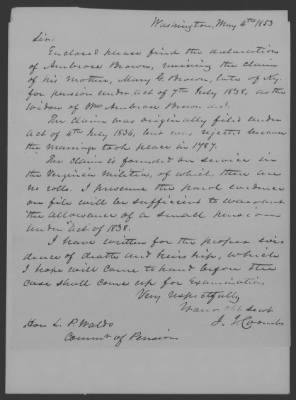 Washington, May 4th 1853
Sir.
Enclosed please find the declaration
of Ambrose Brown, reviving the claim
of his mother, Mary G. Brown, late of Ky.
for pension under act of 7th July 1838, as the
widow of Wm Ambrose Brown decd.
The claim was originally filed under
Act of 4th July 1836, but was rejected because
the marriage took place in 1787.
The claim is founded on service in
the Virginia Militia, of which there are
no rolls. I presume the parol evidence
on file will be sufficient to warrant
the allowance of a small pension
under act of 1838.
I have written for the proper evi
dence of death and heirship, which
I hope will come to hand before the
case shall come up for Examination
Very respectfully
Your obt Servt
J. Coombs
Hon L. P. Waldo
Commr of Pensions